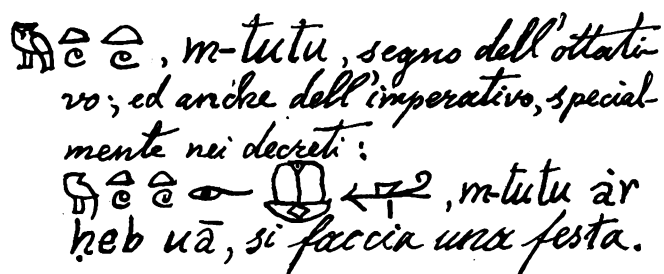 𓅓𓏏𓏲𓏏𓏲, m-tutu, segno dell'ottati-
vo; ed anche dell'imperativo, special-
mente nei decreti:
𓅓𓏏𓏲𓏏𓏲𓁹𓎱𓌡, m-tutu àr
ḥeb uā, si faccia una festa.